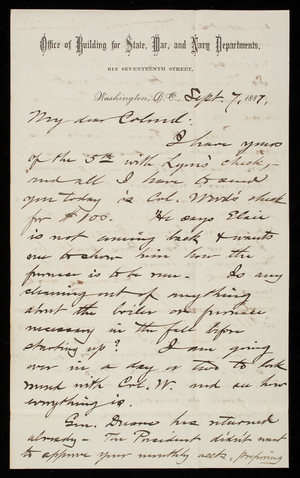 Office of Building for State, War, and Navy Departments,
612 SEVENTEENTH STREET,
Washington, D.C., Sept. 7, 1887.
My dear Colonel:
I have yours
of the 5th with Lyons' check,
and all I have to send
you today is Col. Wood's check
for $100. He says
is not coming back & wants
me to show him how the
furnace is to be run. Is any
cleaning out of anything
about the boiler or furnace
necessary in the fall before
starting up? I am going
over in a day or two to look
round with Col. W. and see how
everything is.
Gen. Duane has returned
already - The President didn't want
to approve your monthly accts, preferring